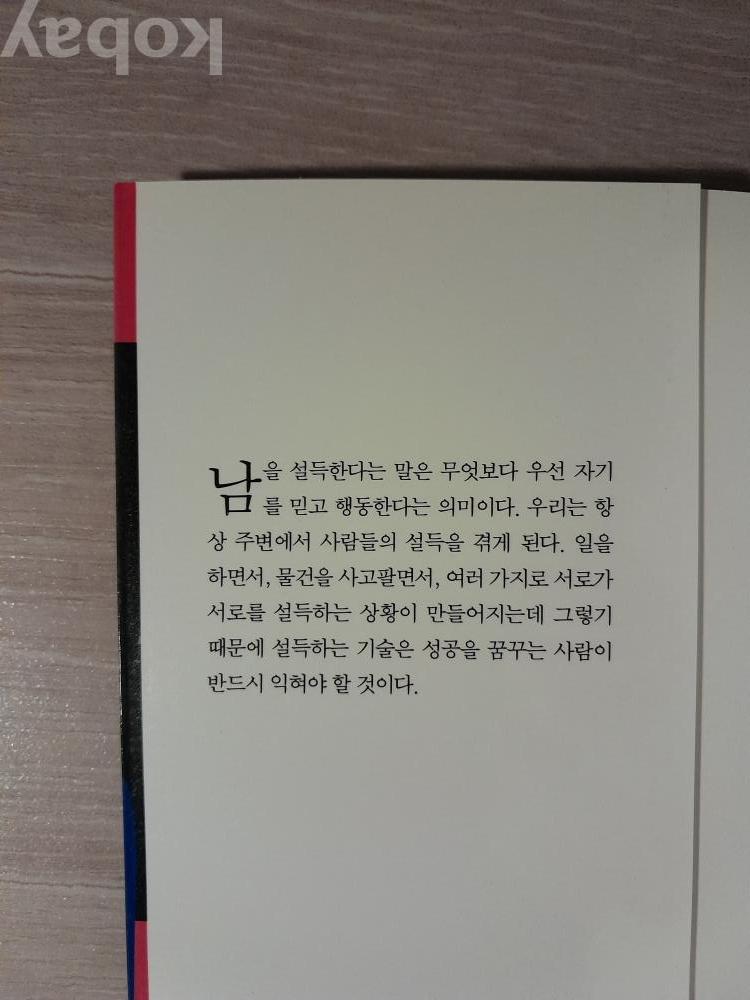 kobay
남을 설득한다는 말은 무엇보다 우선 자기
를 믿고 행동한다는 의미이다. 우리는 항
상 주변에서 사람들의 설득을 겪게 된다. 일을
하면서, 물건을 사고팔면서, 여러 가지로 서로가
서로를 설득하는 상황이 만들어지는데 그렇기
때문에 설득하는 기술은 성공을 꿈꾸는 사람이
반드시 익혀야 할 것이다.